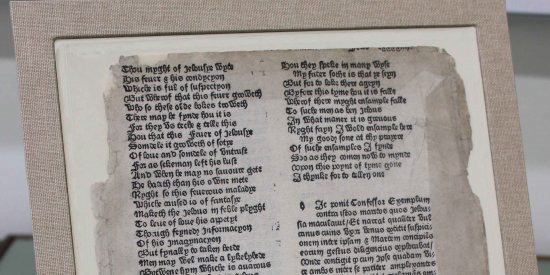 Thou myght of Jelousye wyte
His fever & his condycyon
Whiche is ful of suspectyon
But wherof that this fever groweth
Who so these olde bokes troweth
Ther may he fynde how it is
For they us teche & telle this
How that this Fever of Jelousye
Somdele it groweth of sotye
Of love and somdele of
For as sekeman left his lust
And when he may no savour gete
He hateth than his owne mete
Ryght so this feverous maladye
Whiche caused is of fantasye
Maketh the Jelous in feble plyght
To lese of love his appetyt
Though feyned Informacyon
Of his Imagynacyon
But fynally to taken hede
Men may wel make a lykelyhede
Betwene hym whiche is avarous
How they spake in many wyse
My fader sothe is that ye seyn
But for to loke there ageyn
Before this tyme how it is falle
Wherof there myght ensample falle
To suche men as ben Jelous
In what maner it is grevous
Ryght fayn I wold ensample here
My goode sone at thy prayere
Of suche ensamples I fynde
Soo as they comen now to mynde
Upon this poynt of tyme gone
I thynke for to tellen one
Hic ponit Confessor Exemplum
contra istos maritos quos Jelou-
sia maculavit Et narrat qualiter Vul-
canus cuius Vxor Venus
onem inter ipsam & Martem concipiens
eorum gestus diligencius explorabat
Vnde contigit ipse quadam vi-
ce ambos inter se pariter amplexantes